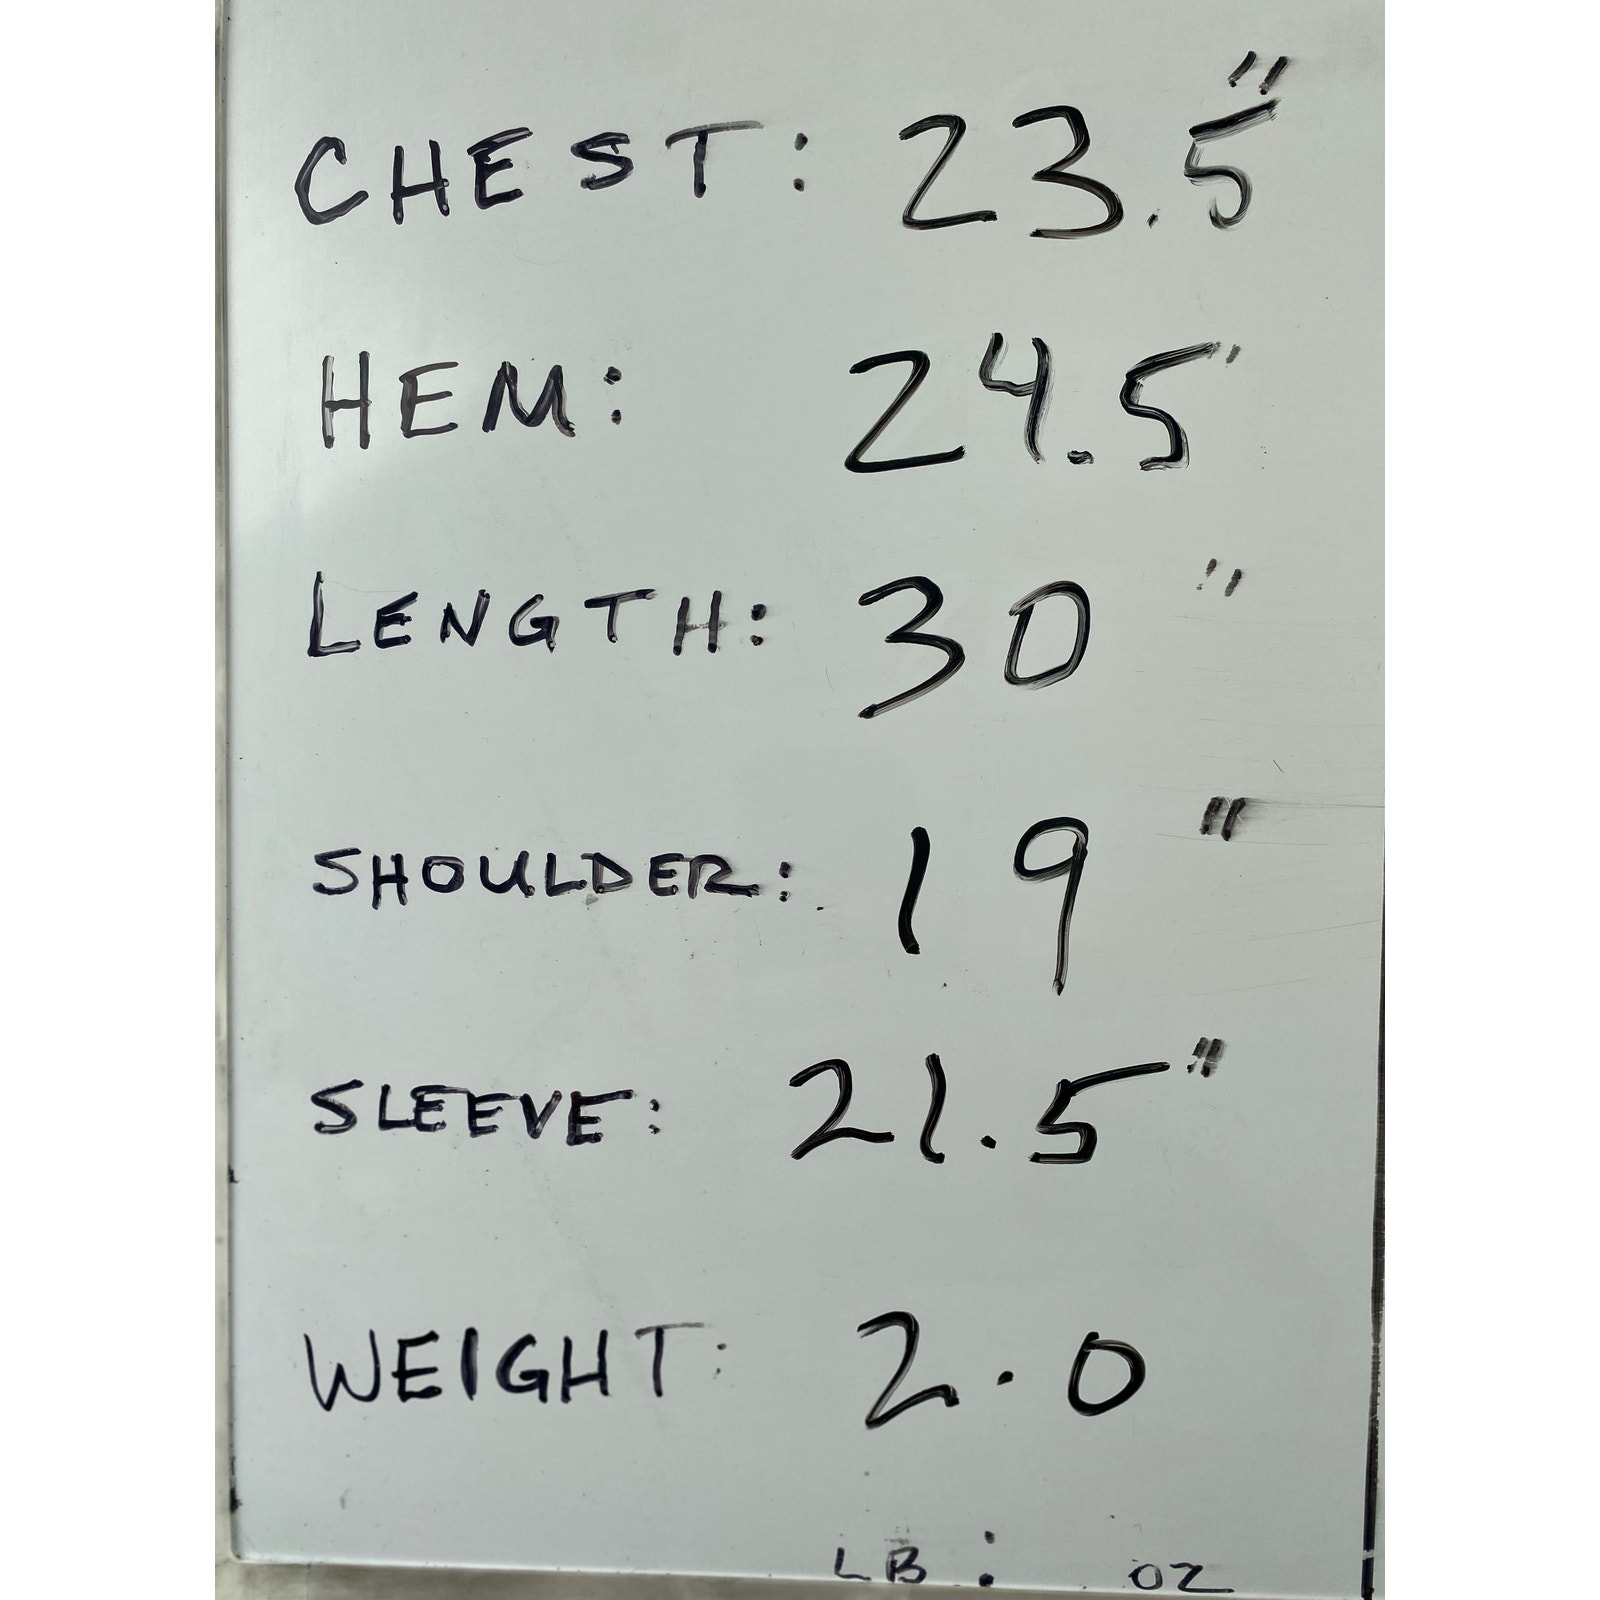 CHEST: 23.5"
HEM: 24.5"
LENGTH: 30"
SHOULDER: 19"
SLEEVE: 21.5"
WEIGHT: 2.0
LB : OZ